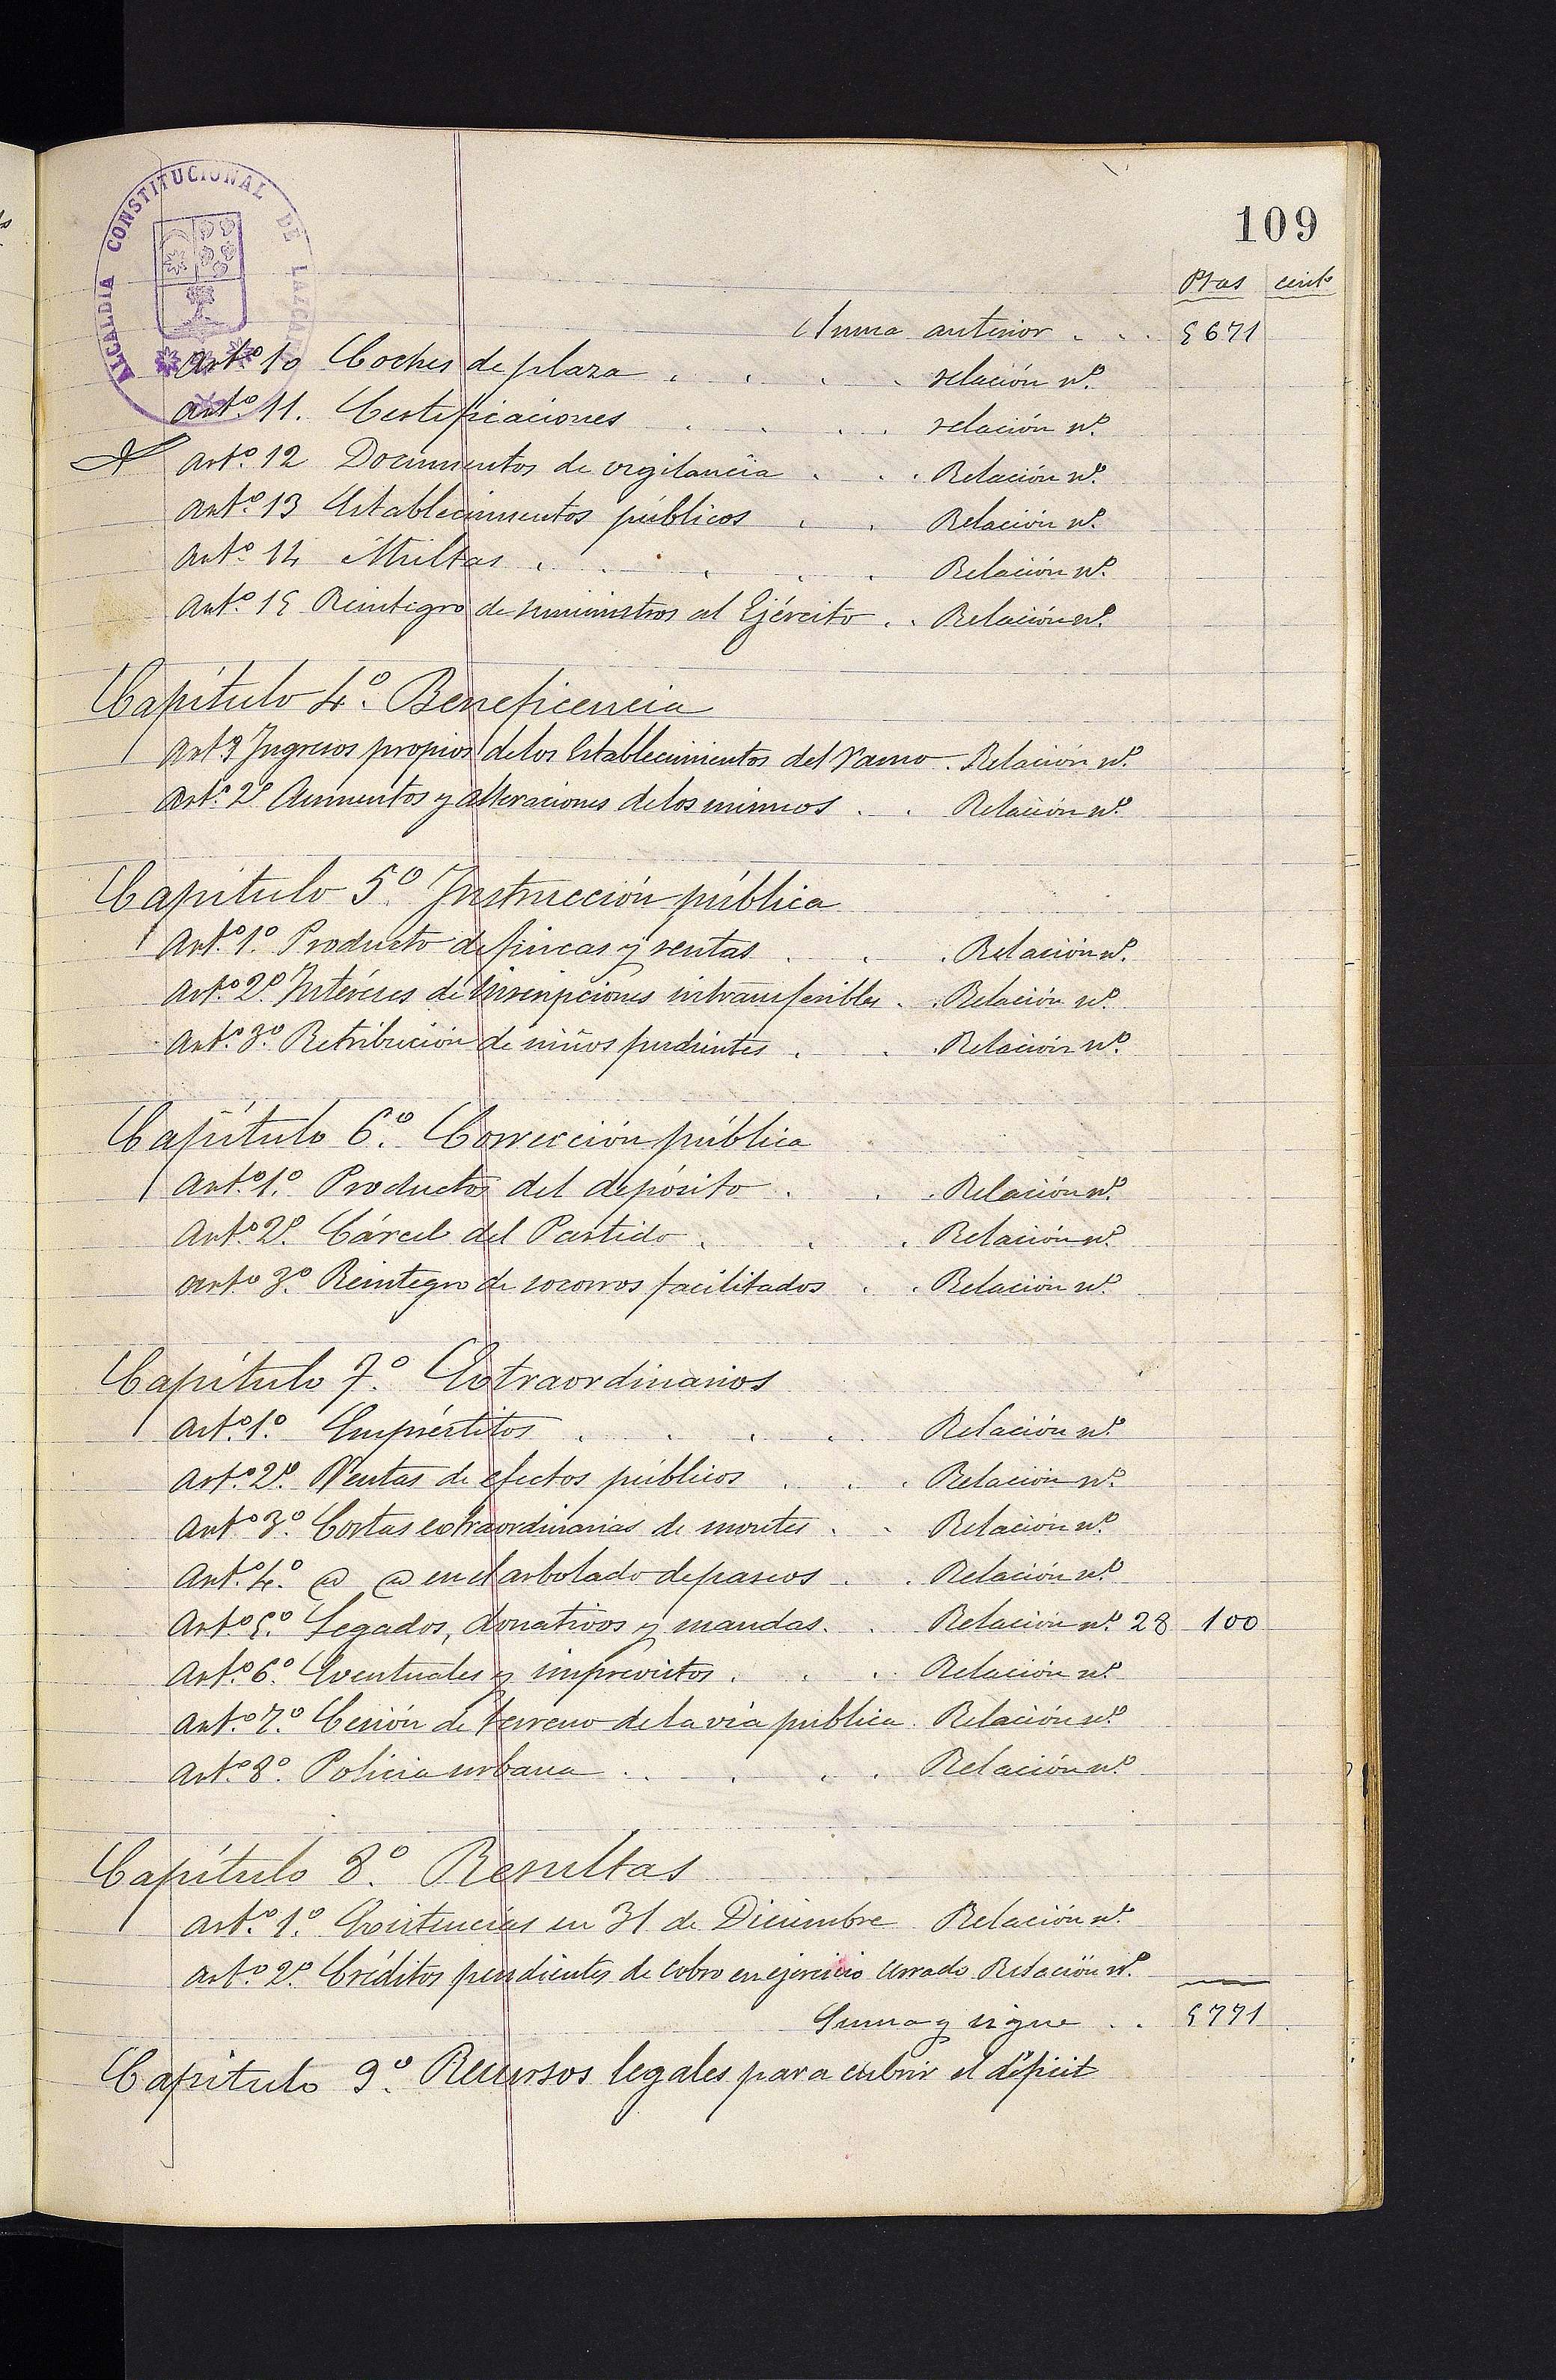 ALCALDIA CONSTITUCIONAL DE LAZCANO
109
Ptas cents
Suma anterior . . . 5671
Artº 10 Coches de plaza . . . . relación nº
Artº 11. Certificaciones . . . . relación nº
Artº 12 Documentos de vigilancia . . . Relación nº
Artº 13 Establecimientos públicos . . Relación nº
Artº 14 Multas . . . . . Relación nº
Artº 15 Reintegro de suministros al Ejército . . Relación nº
Capítulo 4º Beneficencia
Artº Ingresos propios de los Establecimientos del ramo. Relación nº
Artº 2º Aumentos y alteraciones de los mismos . . Relación nº
Capítulo 5º Instrucción pública
Artº 1º Producto de fincas y rentas . . . Relación nº
Artº 2º Intéreses de inscripciones intransferibles . . Relación nº
Artº 3º Retribución de niños pudientes . . . Relación nº
Capítulo 6º Corrección pública
Artº 1º Productos del depósito . . . Relación nº
Artº 2º Cárcel del Partido . . . Relación nº
Artº 3º Reintegro de socorros facilitados . . Relación nº
Capítulo 7º Extraordinarios
Artº 1º Empréstitos . . . . Relación nº
Artº 2º Ventas de efectos públicos . . . Relación nº
Artº 3º Cortas extraordinarias de montes . . Relación nº
Artº 4º @ @ en el arbolado de paseos . . Relación nº
Artº 5º Legados, donativos y mandas . . Relación nº 28 100
Artº 6º Eventuales y imprevistos . . . Relación nº
Artº 7º Cesión de terreno de la vía pública. Relación nº
Artº 8º Policia urbana . . . . Relación nº
Capítulo 8º Resultas
Artº 1º Existencias en 31 de Diciembre Relación nº
Artº 2º Créditos pendientes de cobro en ejercicio cerrado Relación nº
Suma y sigue . . 5771
Capítulo 9º Recursos legales para cubrir el déficit